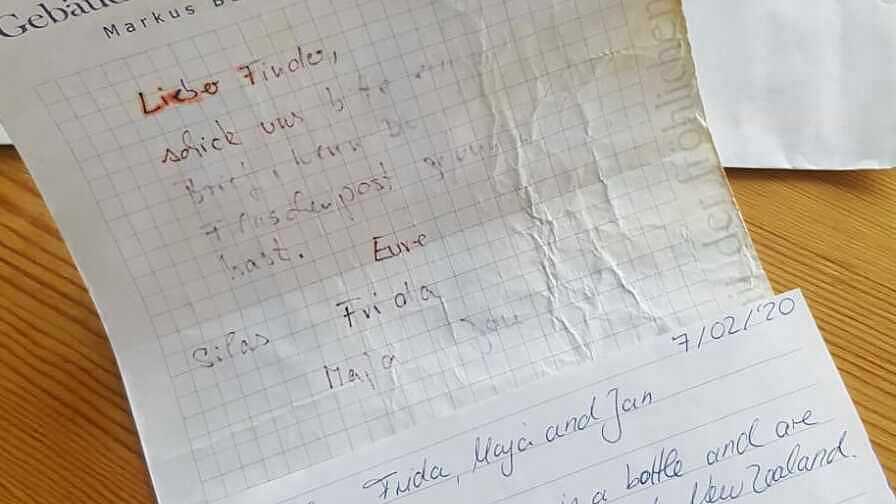 Gebäu
Markus B
Lieber Finder,
schick uns bitte einen
Brief, wenn Du
Flaschenpost gefunden
hast. Eure
Frida
Silas
Maja Jan
der fröhlichen
7/02/'20
Frida, Maja and Jan
in a bottle and are
New Zealand.